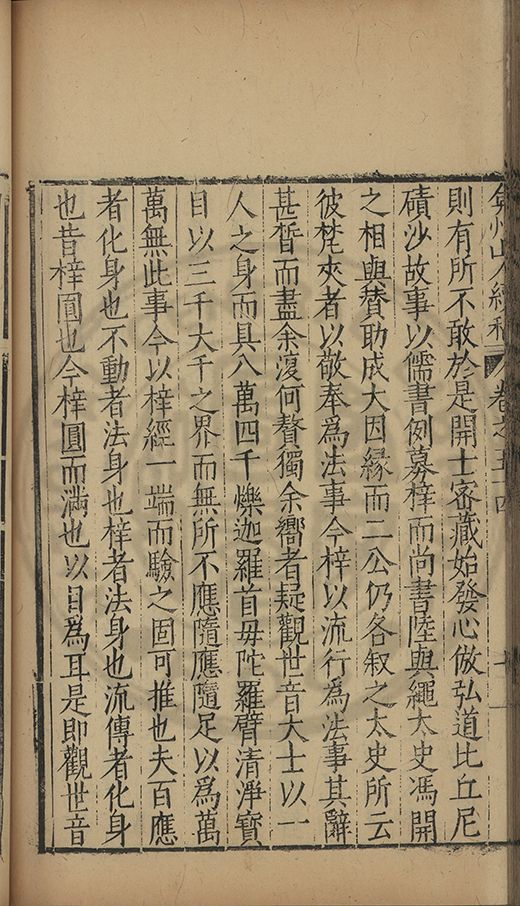 弇州山人續稿 卷之五十四
則有所不敢於是開士密藏始發心倣弘道比丘尼
磧沙故事以儒書例募梓而尚書陸與繩太史馮開
之相與贊助成大因緣而二公仍各叙之太史所云
彼梵夾者以敬奉爲法事今梓以流行爲法事其辭
甚晳而盡余復何贅獨余嚮者疑觀世音大士以一
人之身而具八萬四千爍迦羅首毋陀羅臂清淨寶
目以三千大千之界而無所不應隨應隨足以爲萬
萬無此事今以梓經一端而驗之固可推也夫百應
者化身也不動者法身也梓者法身也流傳者化身
也昔梓圓也今梓圓而滿也以目爲耳是即觀世音